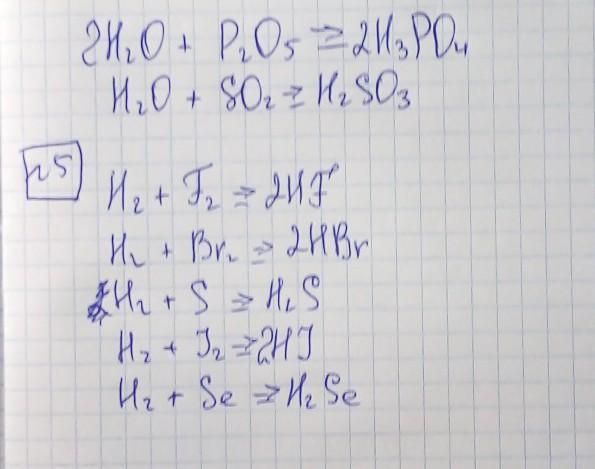 2H₂O + P₂O₅ ⇒ 2H₃PO₄
H₂O + SO₂ ⇒ H₂SO₃
n5
H₂ + F₂ ⇒ 2HF
H₂ + Br₂ ⇒ 2HBr
H₂ + S ⇒ H₂S
H₂ + J₂ ⇒ 2HJ
H₂ + Se ⇒ H₂Se